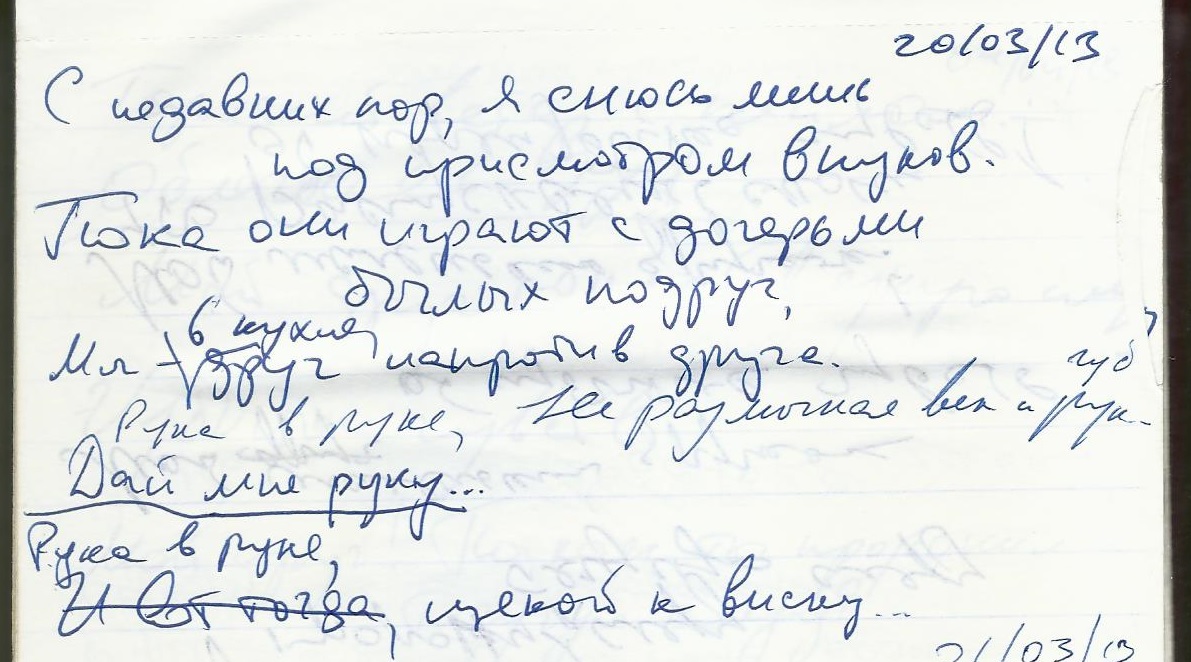 20/03/13
С недавних пор, я снюсь лишь
под присмотром внуков.
Пока они играют с дочерьми
былых подруг,
в кухне,
Мы – друг напротив друга.
губ
Рука в руке, Не размыкая век и рук.
Дай мне руку...
Рука в руке,
И вот тогда, щекой к виску...
21/03/13